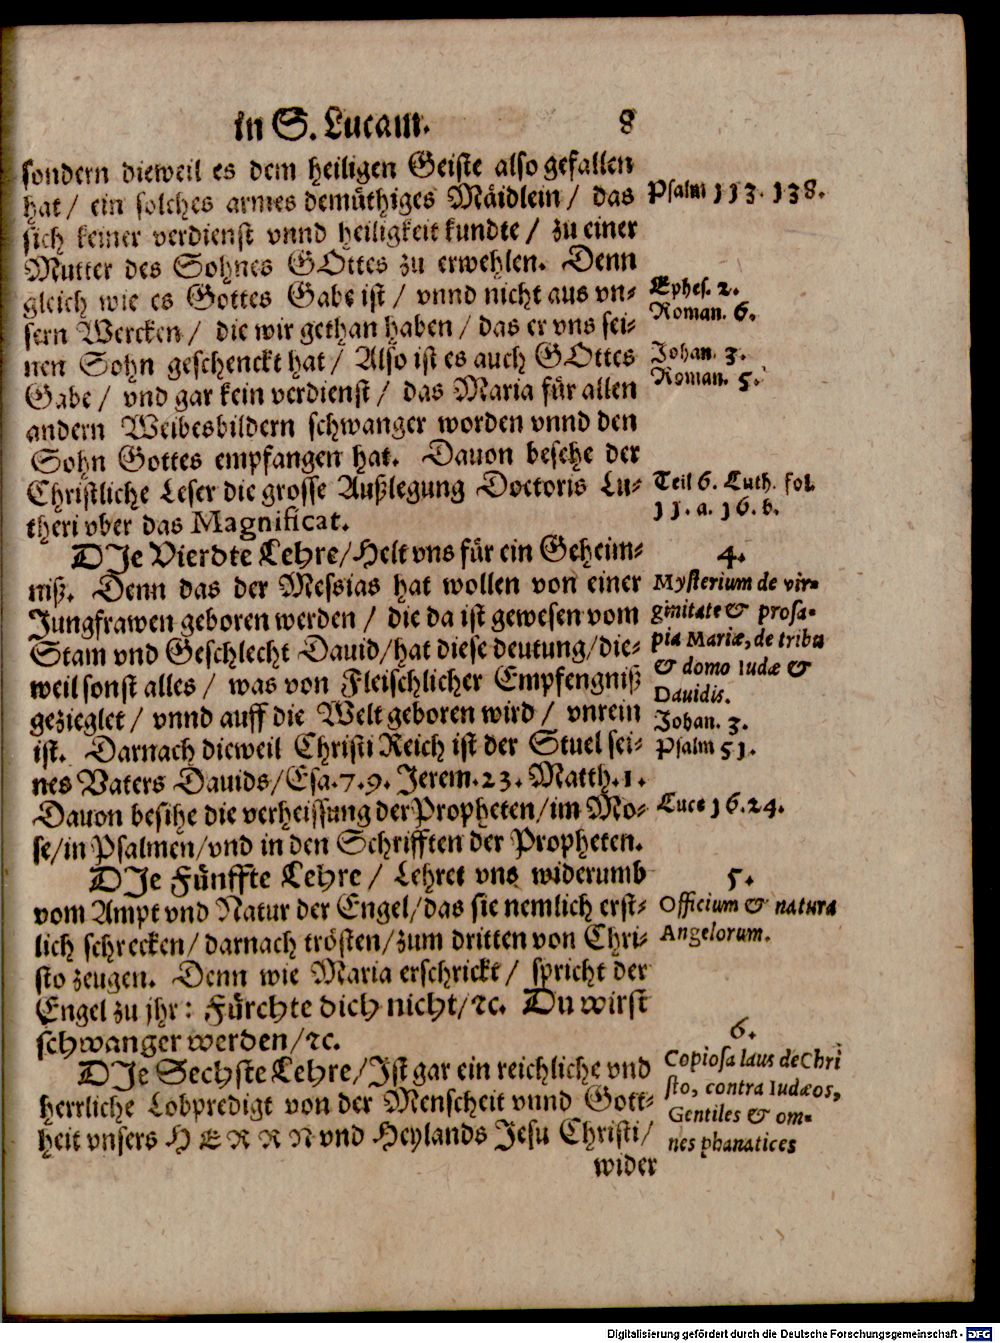 in S. Lucam. 8
sondern dieweil es dem heiligen Geiste also gefallen
hat / ein solches armes demüthiges Mäidlein / das
sich keiner verdienst vnnd heiligkeit kundte / zu einer
Mutter des Sohnes GOttes zu erwehlen. Denn
gleich wie es Gottes Gabe ist / vnnd nicht aus vn-
sern Wercken / die wir gethan haben / das er vns sei-
nen Sohn geschenckt hat / Also ist es auch GOttes
Gabe / vnd gar kein verdienst / das Maria für allen
andern Weibesbildern schwanger worden vnnd den
Sohn Gottes empfangen hat. Dauon besehe der
Christliche Leser die grosse Außlegung Doctoris Lu-
theri vber das Magnificat.
DIe Vierdte Lehre/Helt vns für ein Geheim-
niß. Denn das der Messias hat wollen von einer
Jungfrawen geboren werden / die da ist gewesen vom
Stam vnd Geschlecht Dauid/hat diese deutung/die-
weil sonst alles / was von Fleischlicher Empfengniß
gezieglet / vnnd auff die Welt geboren wird / vnrein
ist. Darnach dieweil Christi Reich ist der Stuel sei-
nes Vaters Dauids/Esa.7.9. Jerem.23. Matth.1.
Dauon besihe die verheissung der Propheten/im Mo-
se/in Psalmen/vnd in den Schrifften der Propheten.
DIe Fünffte Lehre / Lehret vns widerumb
vom Ampt vnd Natur der Engel/das sie nemlich erst-
lich schrecken/darnach trösten/zum dritten von Chri-
sto zeugen. Denn wie Maria erschrickt / spricht der
Engel zu jhr: Fürchte dich nicht/ꝛc. Du wirst
schwanger werden/ꝛc.
DIe Sechste Lehre/Ist gar ein reichliche vnd
herrliche Lobpredigt von der Menscheit vnnd Gott-
heit vnsers HERRN vnd Heylands Jesu Christi/
wider
Psalm 113. 138.
Ephes. 2.
Roman. 6.
Johan. 3.
Roman. 5.
Teil 6. Luth. fol.
11. a. 16. b.
4.
Mysterium de vir-
ginitate & prosa-
pia Mariæ, de tribu
& domo Iudæ &
Dauidis.
Johan. 3.
Psalm 51.
Luce 16. 24.
5.
Officium & natura
Angelorum.
6.
Copiosa laus de Chri
sto, contra Iudæos,
Gentiles & om-
nes phanatices
Digitalisierung gefördert durch die Deutsche Forschungsgemeinschaft - DFG